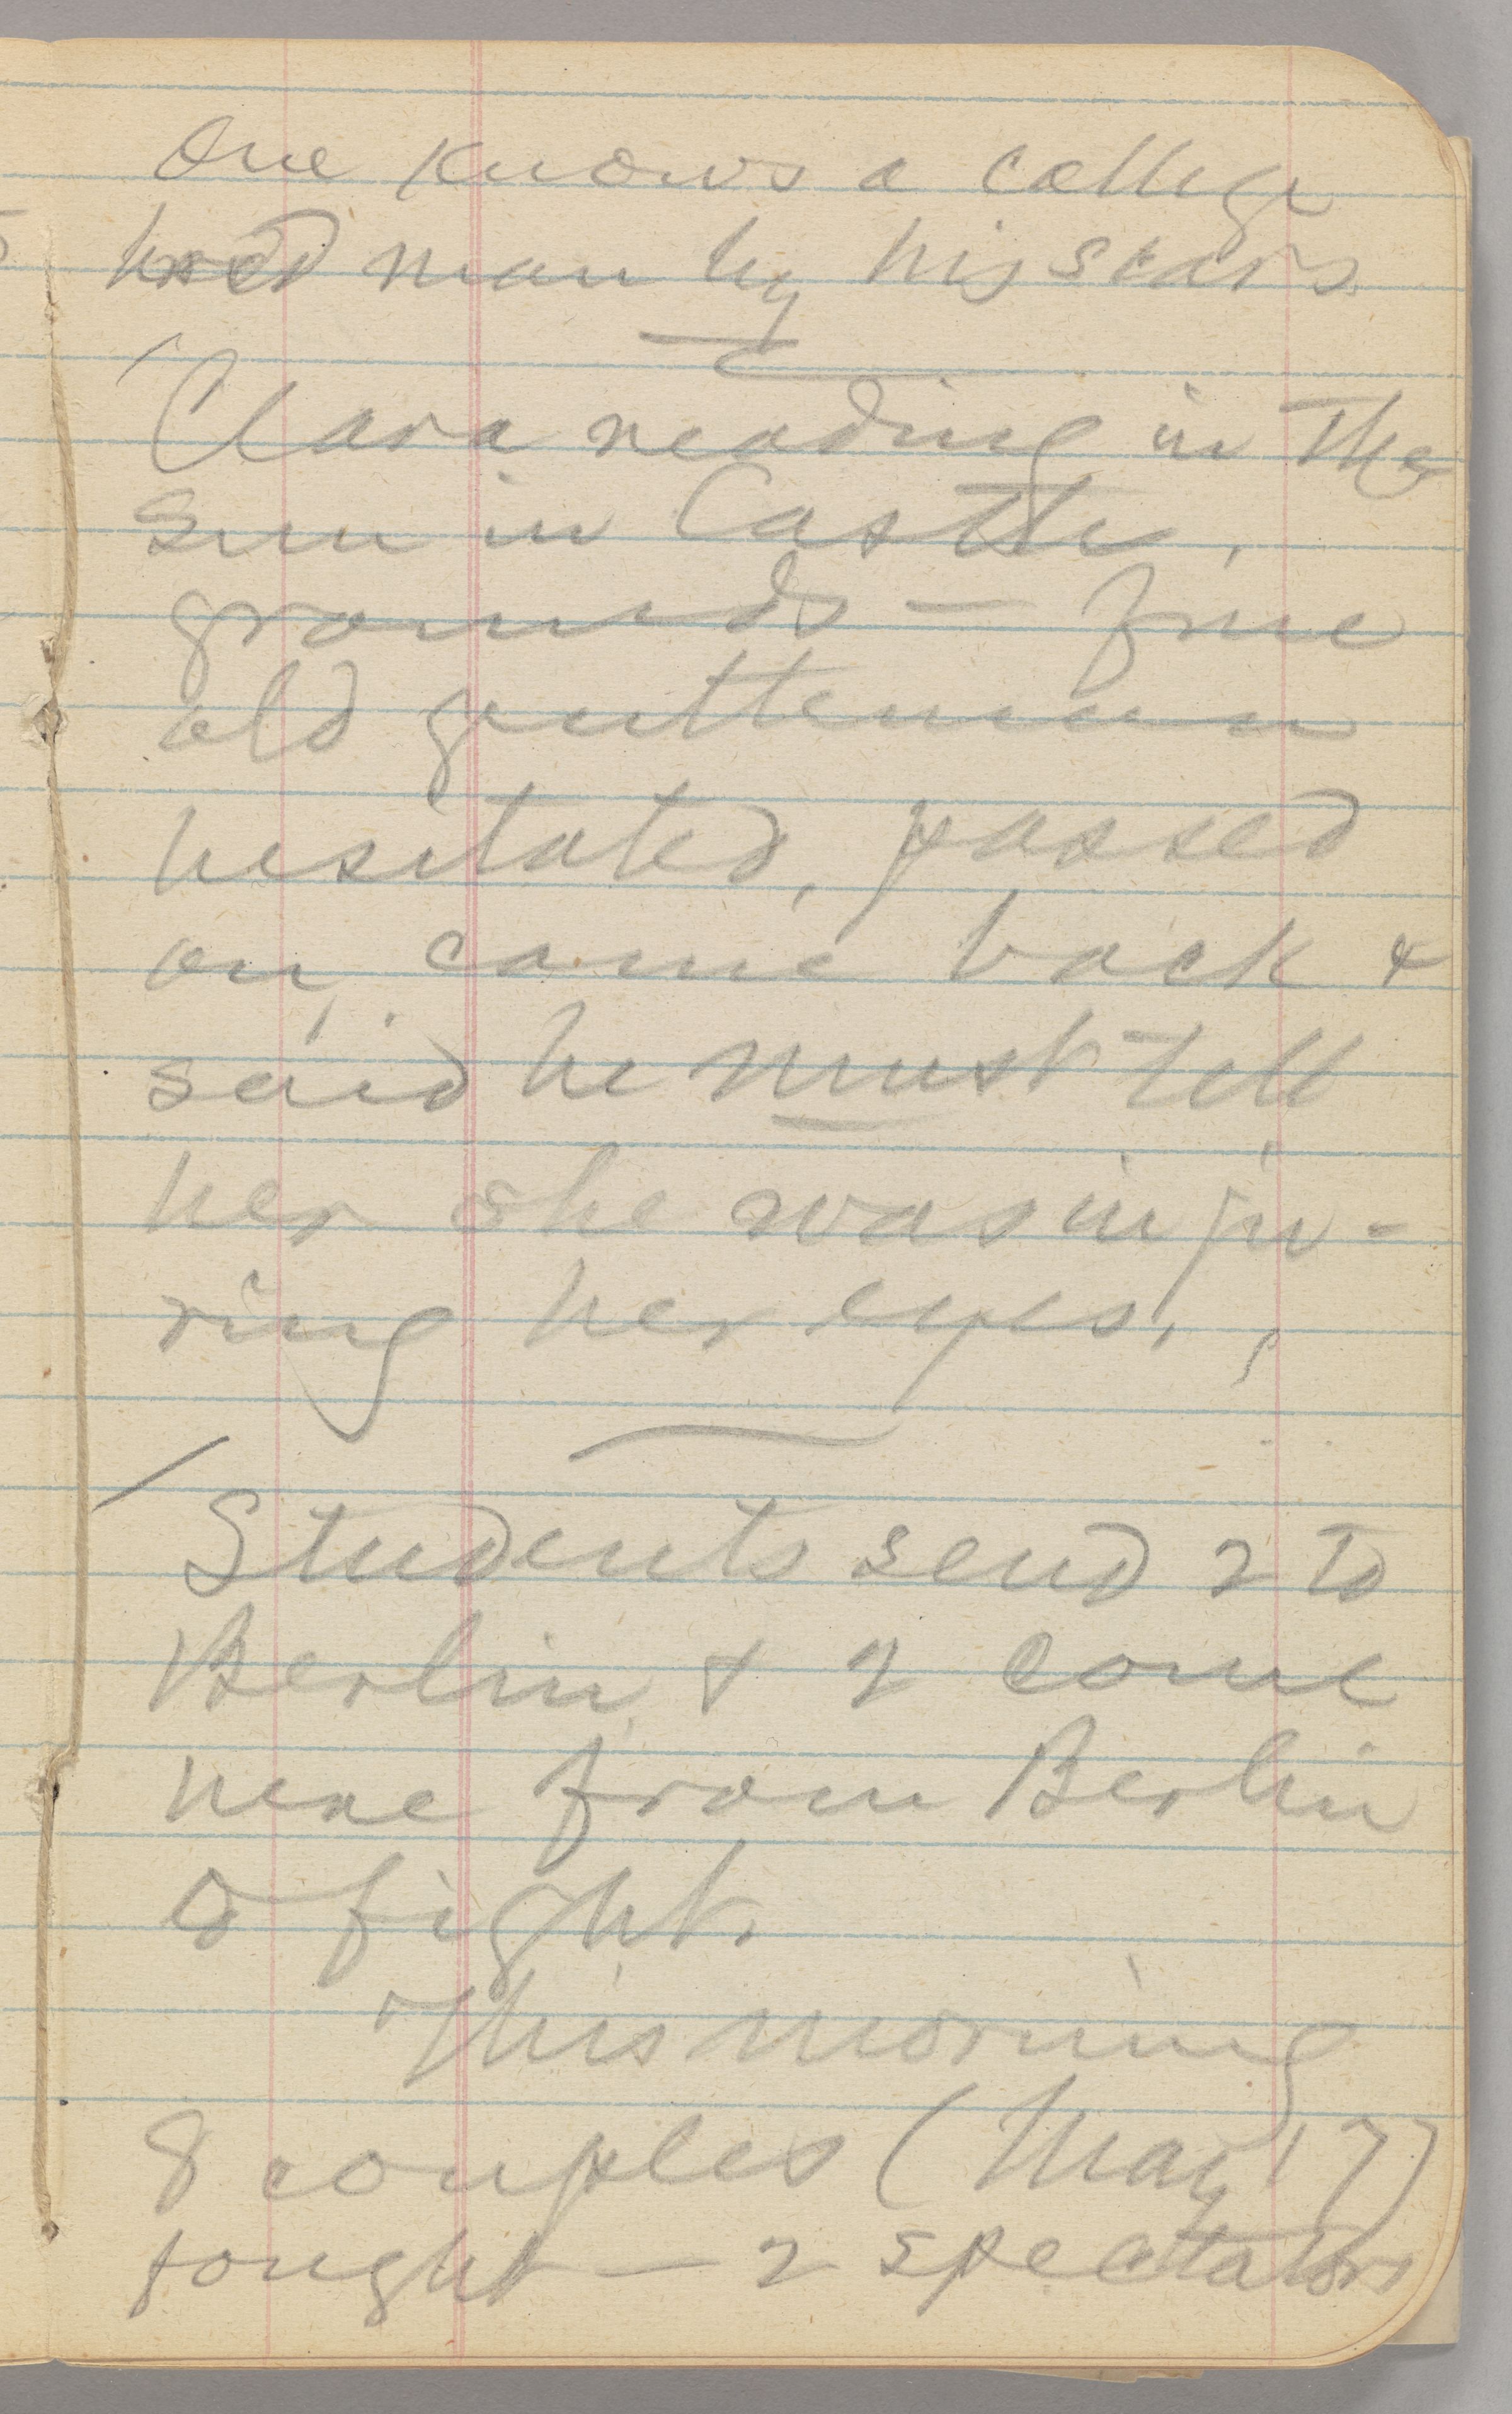 One knows a college
bred man by his scars
Clara reading in the
sun in Castle
grounds — fine
old gentleman
hesitated, passed
on, came back &
said he must tell
her she was inju-
ring her eyes.
Students send 2 to
Berlin & 2 come
here from Berlin
to fight.
This morning
8 couples (May 17)
fought — 2 spectators